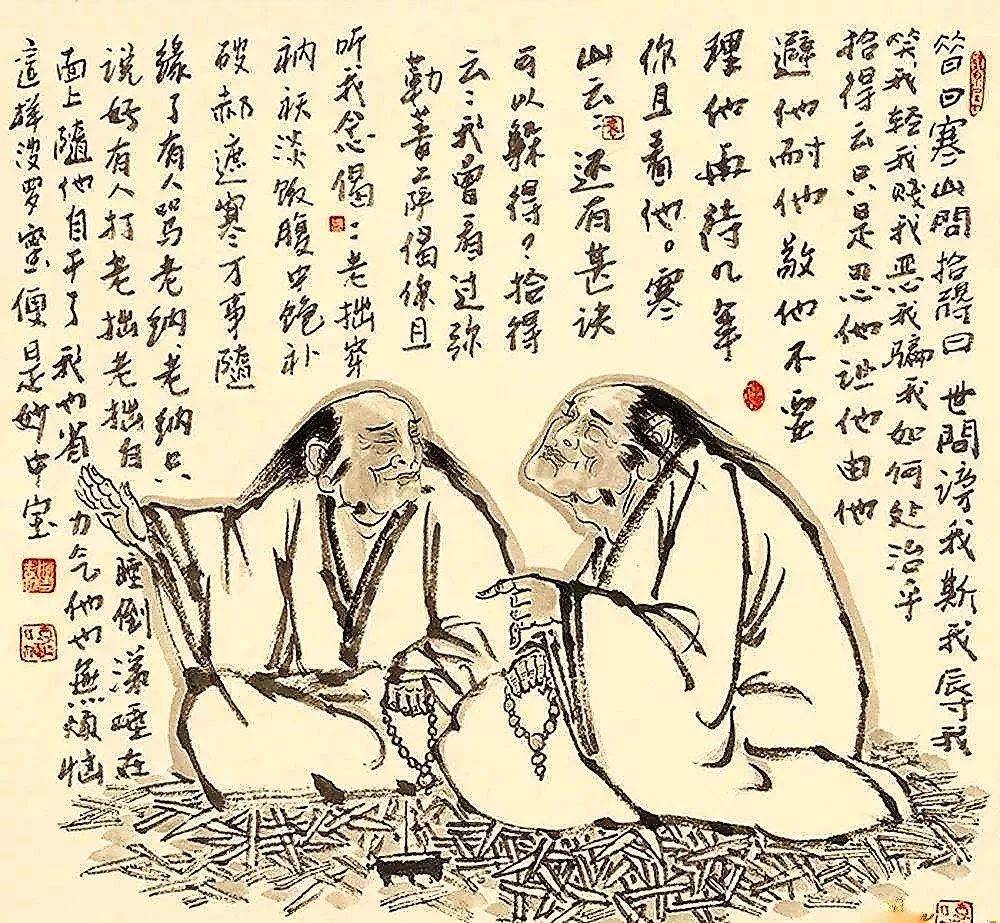 昔日寒山問拾得曰世間謗我斯我辱我
笑我轻我贱我恶我骗我如何处治乎
拾得云只是忍他让他由他
避他耐他敬他不要
理他再待几年
你且看他。寒
山云:还有甚诀
可以躲得?拾得
云:我曾看过弥
勒菩萨偈你且
听我念偈:老拙穿
衲袄淡饭腹中饱补
破郝遮寒万事隨
缘了有人骂老纳、老纳只
说好有人打老拙老拙自睡倒涕唾在
面上隨他自干了我也省力气他也無煩恼
這样波罗蜜便是妙中宝